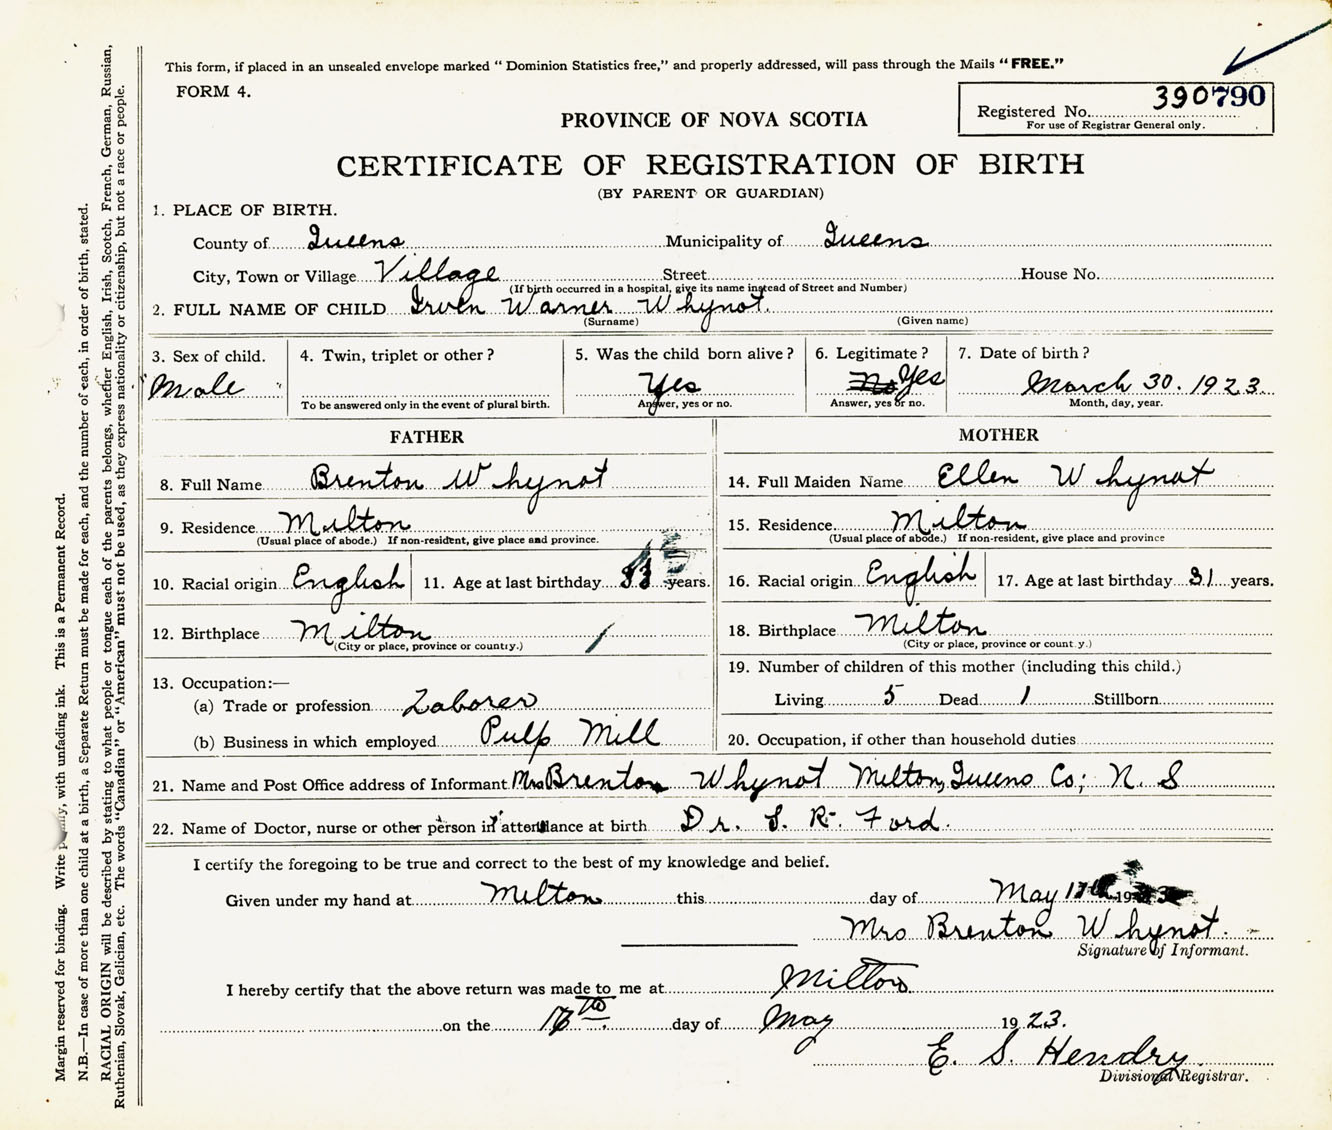 This form, if placed in an unsealed envelope marked “ Dominion Statistics free,” and properly addressed, will pass through the Mails “ FREE.”
FORM 4.
Registered No. 390790
For use of Registrar General only.
PROVINCE OF NOVA SCOTIA
CERTIFICATE OF REGISTRATION OF BIRTH
(BY PARENT OR GUARDIAN)
1. PLACE OF BIRTH.
County of Queens Municipality of Queens
City, Town or Village Village Street House No.
(If birth occurred in a hospital, give its name instead of Street and Number)
2. FULL NAME OF CHILD Irven Warner Whynot.
(Surname) (Given name)
3. Sex of child. 4. Twin, triplet or other? 5. Was the child born alive? 6. Legitimate? 7. Date of birth?
Male Yes No Yes March 30. 1923.
To be answered only in the event of plural birth. Answer, yes or no. Answer, yes or no. Month, day, year.
FATHER
8. Full Name Brenton Whynot
9. Residence Milton
(Usual place of abode.) If non-resident, give place and province.
10. Racial origin English 11. Age at last birthday 33 years.
12. Birthplace Milton
(City or place, province or country.)
13. Occupation:—
(a) Trade or profession Laborer
(b) Business in which employed Pulp Mill
MOTHER
14. Full Maiden Name Ellen Whynot
15. Residence Milton
(Usual place of abode.) If non-resident, give place and province
16. Racial origin English 17. Age at last birthday 31 years.
18. Birthplace Milton
(City or place, province or country.)
19. Number of children of this mother (including this child.)
Living 5 Dead 1 Stillborn
20. Occupation, if other than household duties
21. Name and Post Office address of Informant Mrs Brenton Whynot Milton, Queens Co; N. S
22. Name of Doctor, nurse or other person in attendance at birth Dr. S. R. Ford.
I certify the foregoing to be true and correct to the best of my knowledge and belief.
Given under my hand at Milton this day of May 19
Mrs Brenton Whynot.
Signature of Informant.
I hereby certify that the above return was made to me at Milton
on the day of May 1923.
E. S. Hendry
Divisional Registrar.
Margin reserved for binding. Write with unfading ink. This is a Permanent Record.
N.B.—In case of more than one child at a birth, a Separate Return must be made for each, and the number of each, in order of birth, stated.
RACIAL ORIGIN will be described by stating to what people or tongue each of the parents belongs, whether English, Irish, Scotch, French, German, Russian,
Ruthenian, Slovak, Galician, etc. The words “Canadian” or “American” must not be used, as they express nationality or citizenship, but not a race or people.